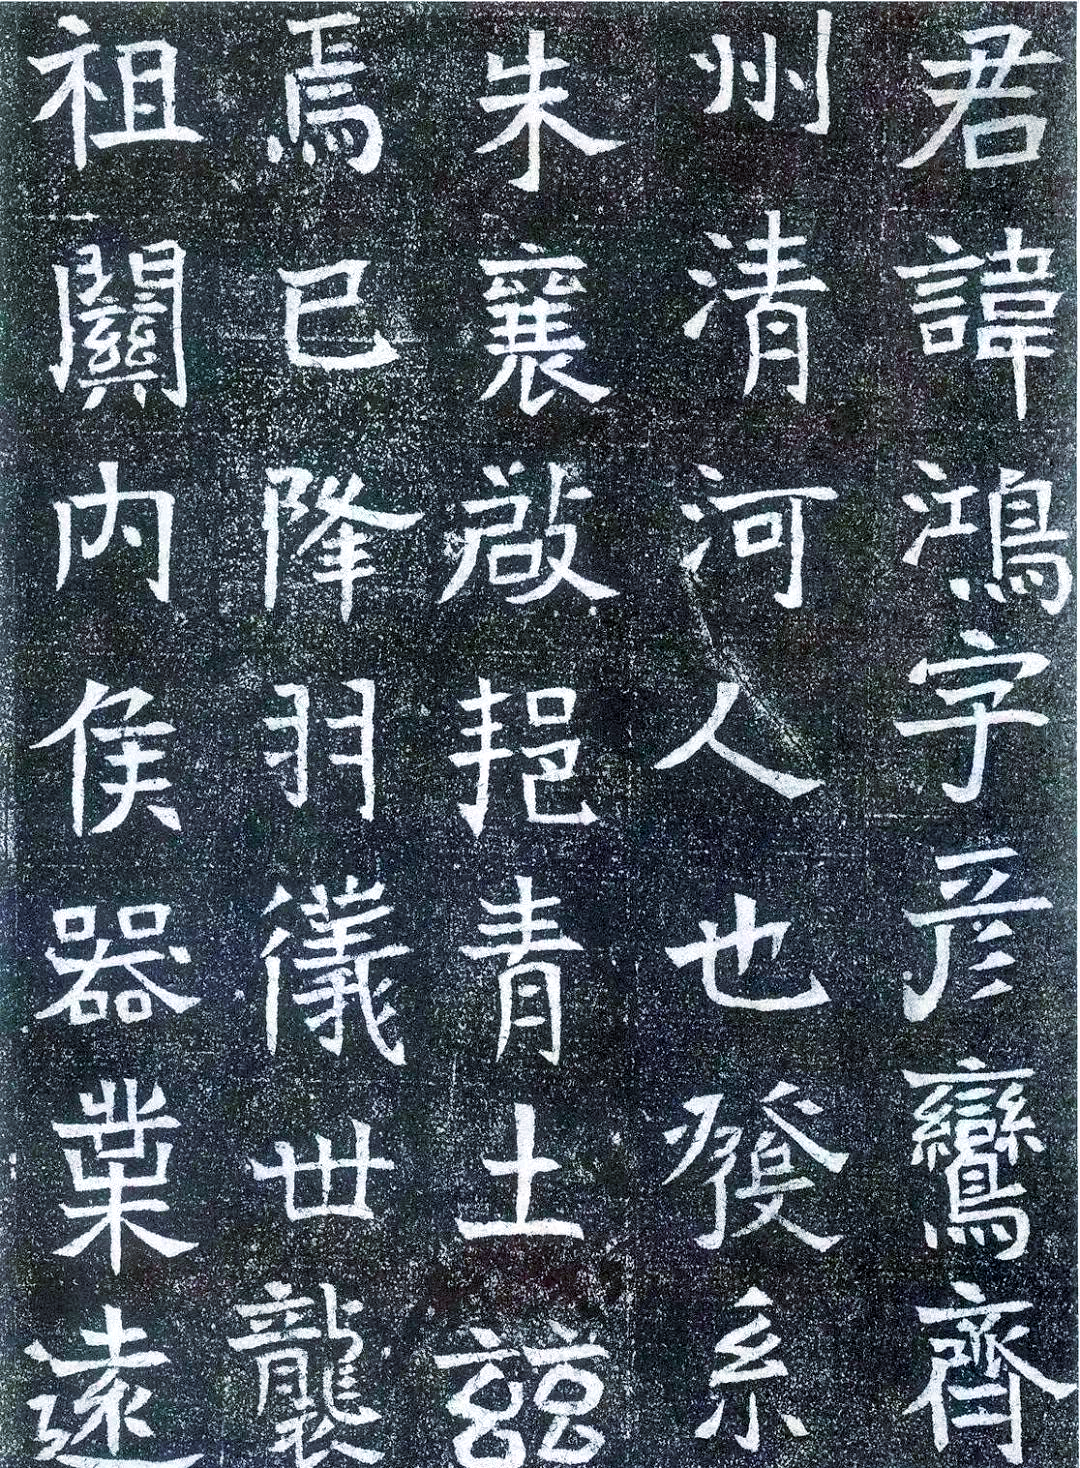 君諱鴻字彦鸞齊
州清河人也發系
朱襄啟挹青土茲
焉已降羽儀世襲
祖關內侯器業遠